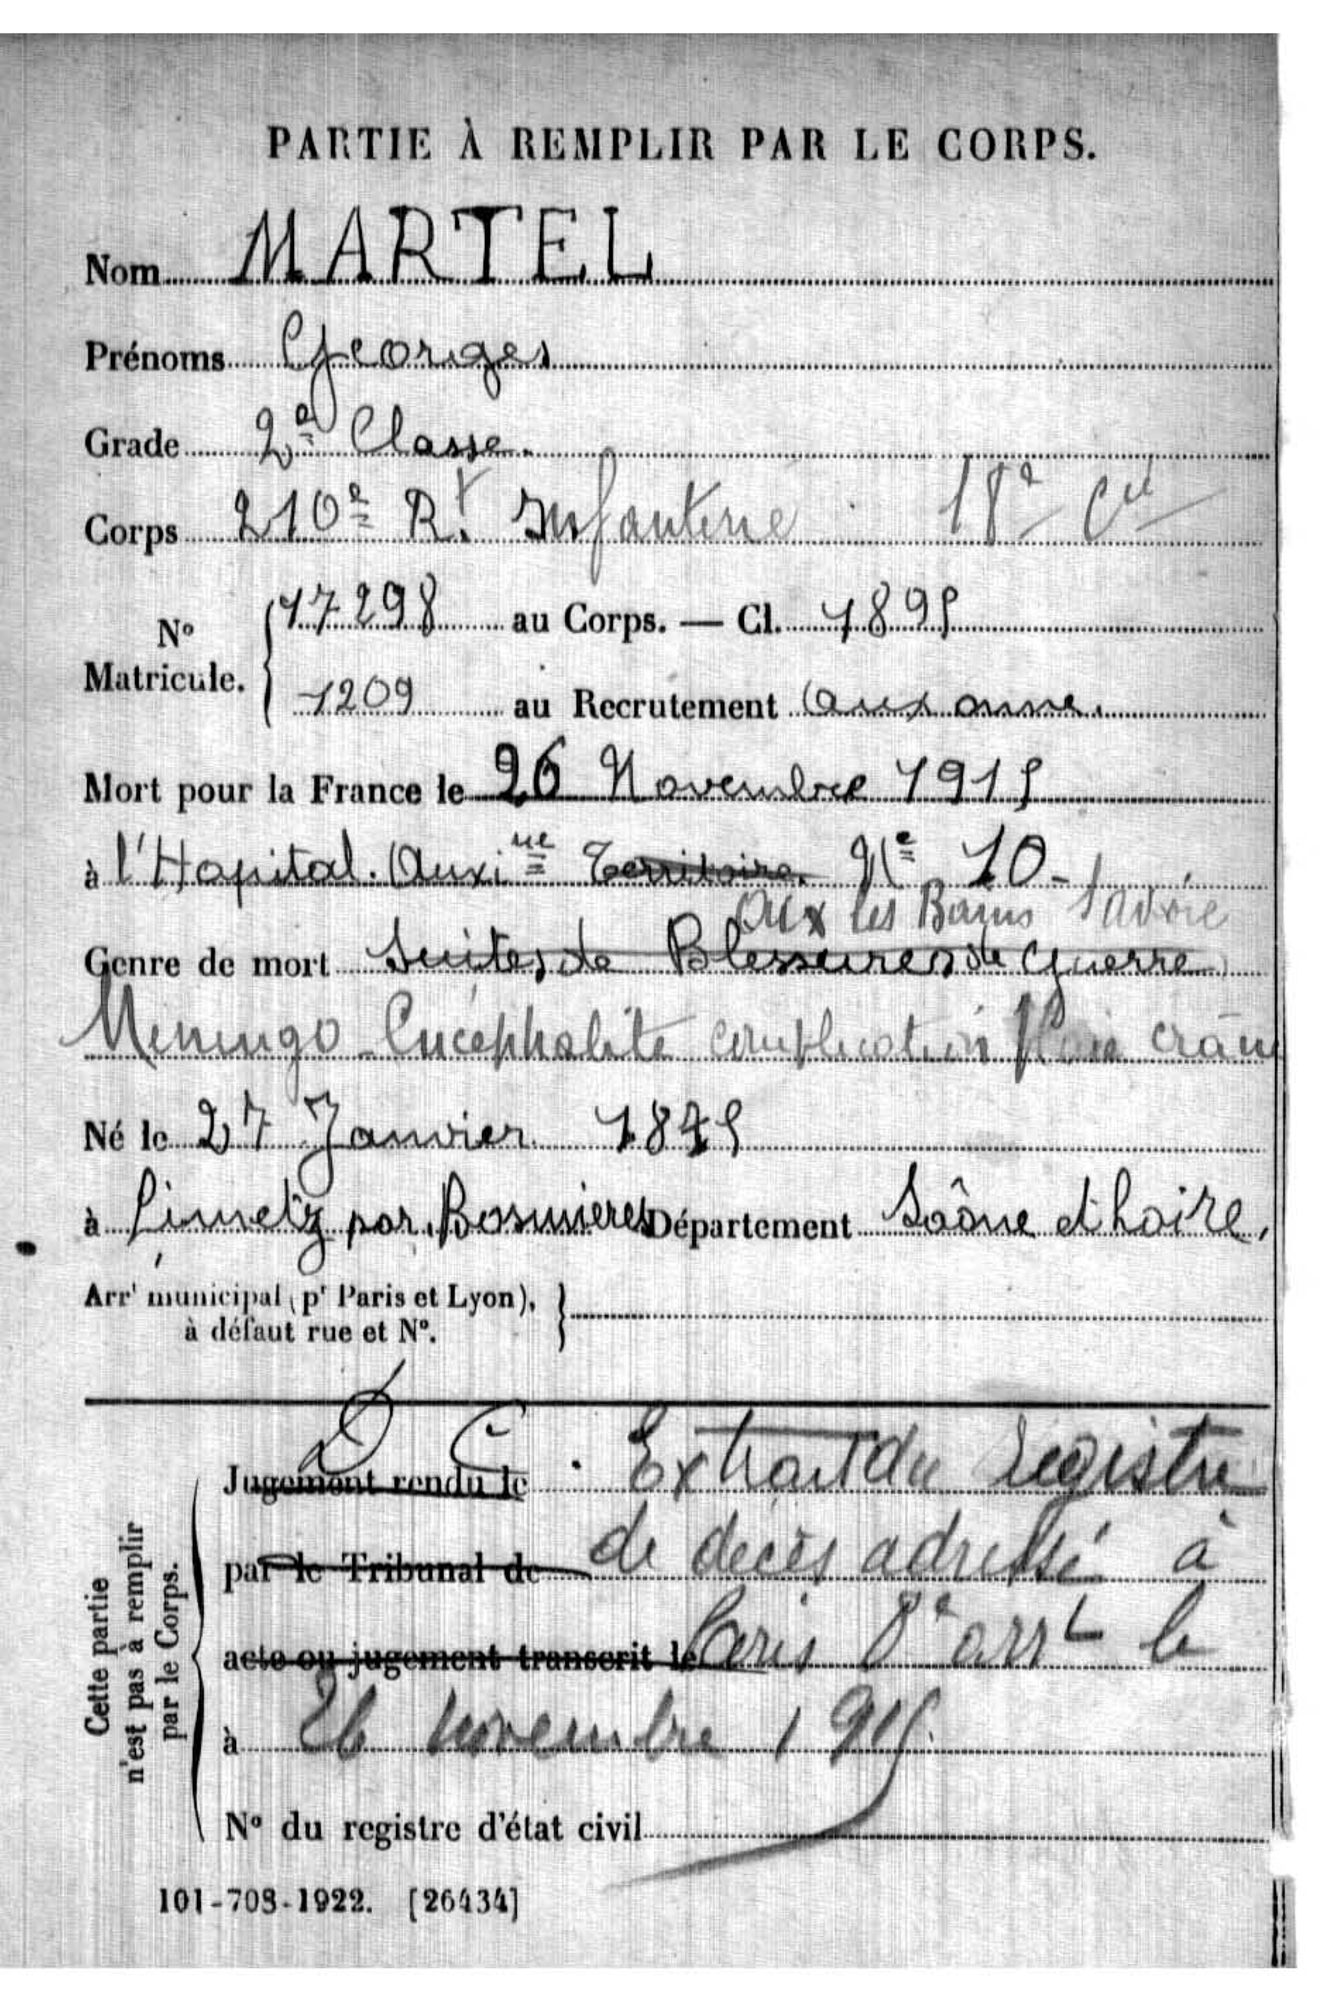 PARTIE À REMPLIR PAR LE CORPS.
Nom MARTEL
Prénoms Georges
Grade 2e Classe.
Corps 210e Rt Infanterie 18e Cie
No Matricule. 17298 au Corps. — Cl. 1895
1209 au Recrutement Auxonne.
Mort pour la France le 26 Novembre 1915
à l'Hopital. Auxire Territoire. No 10
Aix les Bains Savoie
Genre de mort Suites de Blessures de Guerre
Meningo Encéphalite complication plaie crân
Né le 27 Janvier 1875
à par Département Saône et Loire,
Arrt municipal (pr Paris et Lyon),
à défaut rue et No.
D C. Extrait du registre
Jugement rendu le
de décès adressé à
par le Tribunal de
Paris 8e arrt le
acte ou jugement transcrit le
à 26 novembre 1915.
No du registre d'état civil
Cette partie
n'est pas à remplir
par le Corps.
101-708-1922. [26434]